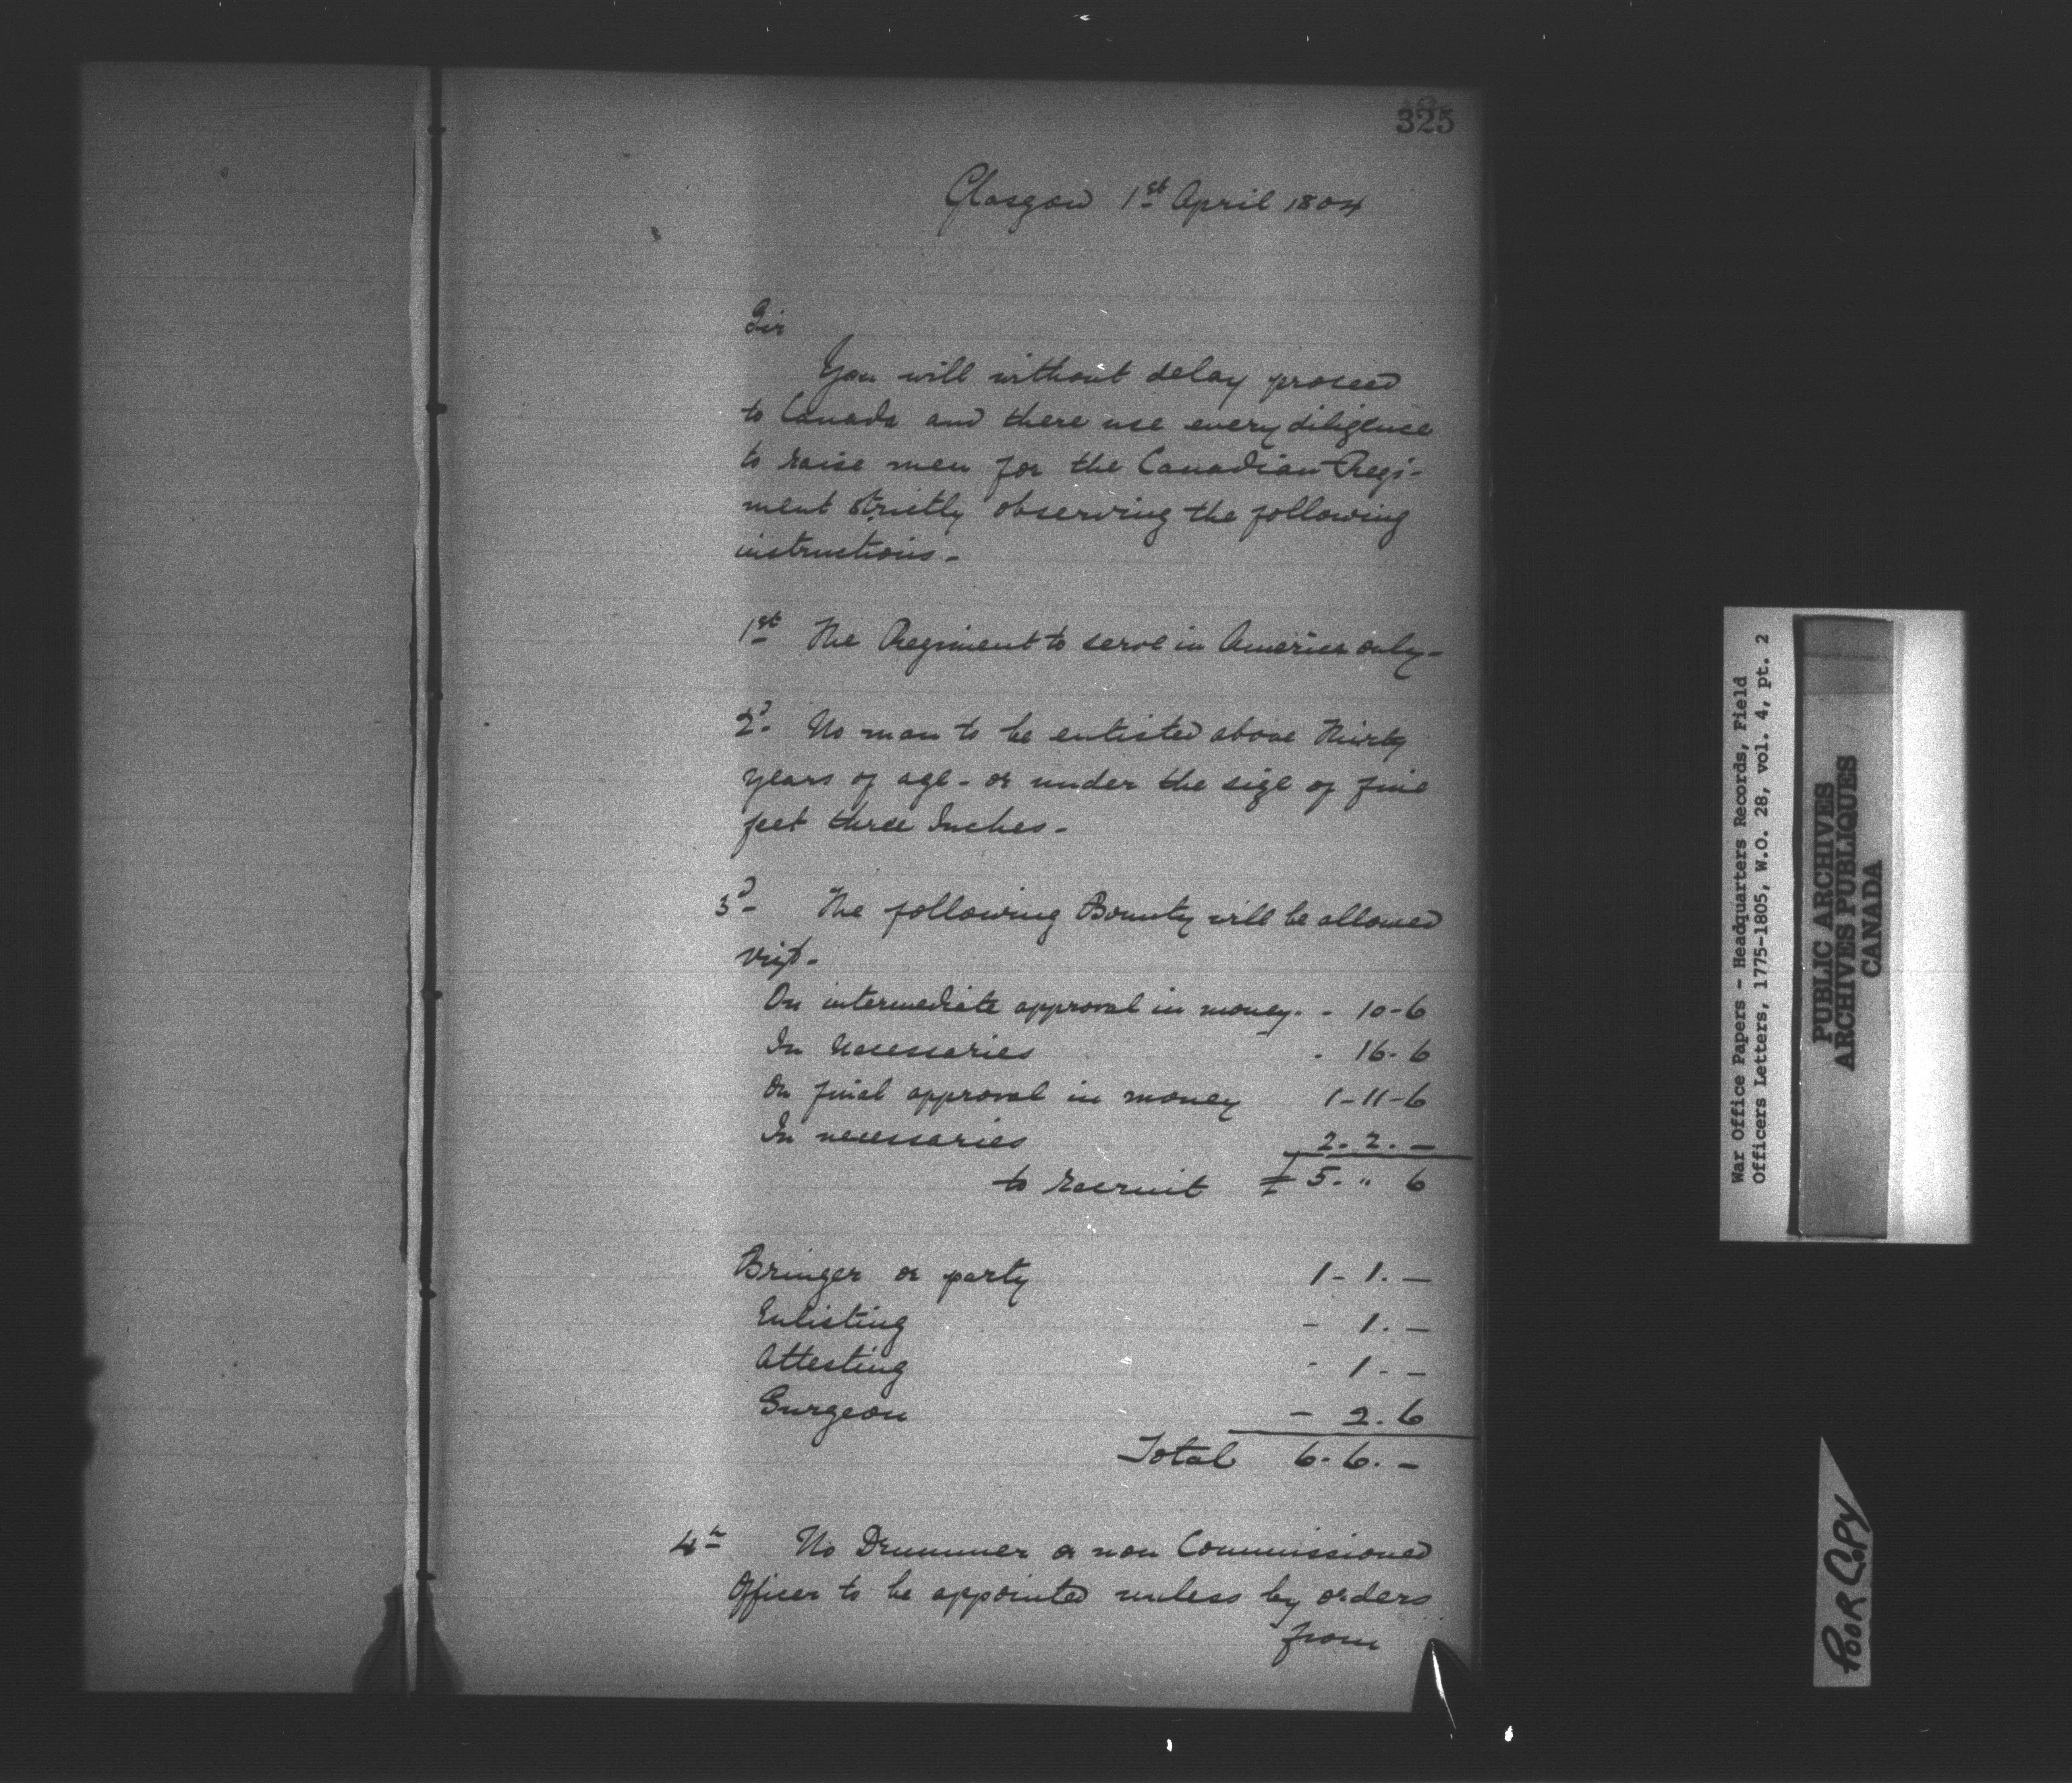 325
Glasgow 1st April 1804
Sir
You will without delay proceed
to Canada and there use every diligence
to raise men for the Canadian Regi-
ment strictly observing the following
instructions.-
1st The Regiment to serve in America only-
2d. No man to be enlisted above Thirty
years of age - or under the size of five
feet three Inches.-
3d- The following Bounty will be allowed
vizt.-
On intermediate approval in money. - 10-6
In Necessaries - 16-6
On final approval in money 1-11-6
In necessaries 2. 2. -
to recruit £ 5. " 6
Bringer or party 1- 1. -
Enlisting - 1. -
Attesting - 1. -
Surgeon - 2. 6
Total 6. 6. -
4th No Drummer or non Commissioned
Officer to be appointed unless by orders
from
War Office Papers - Headquarters Records, Field
Officers Letters, 1775-1805, W.O. 28, vol. 4, pt. 2
PUBLIC ARCHIVES
ARCHIVES PUBLIQUES
CANADA
POOR COPY